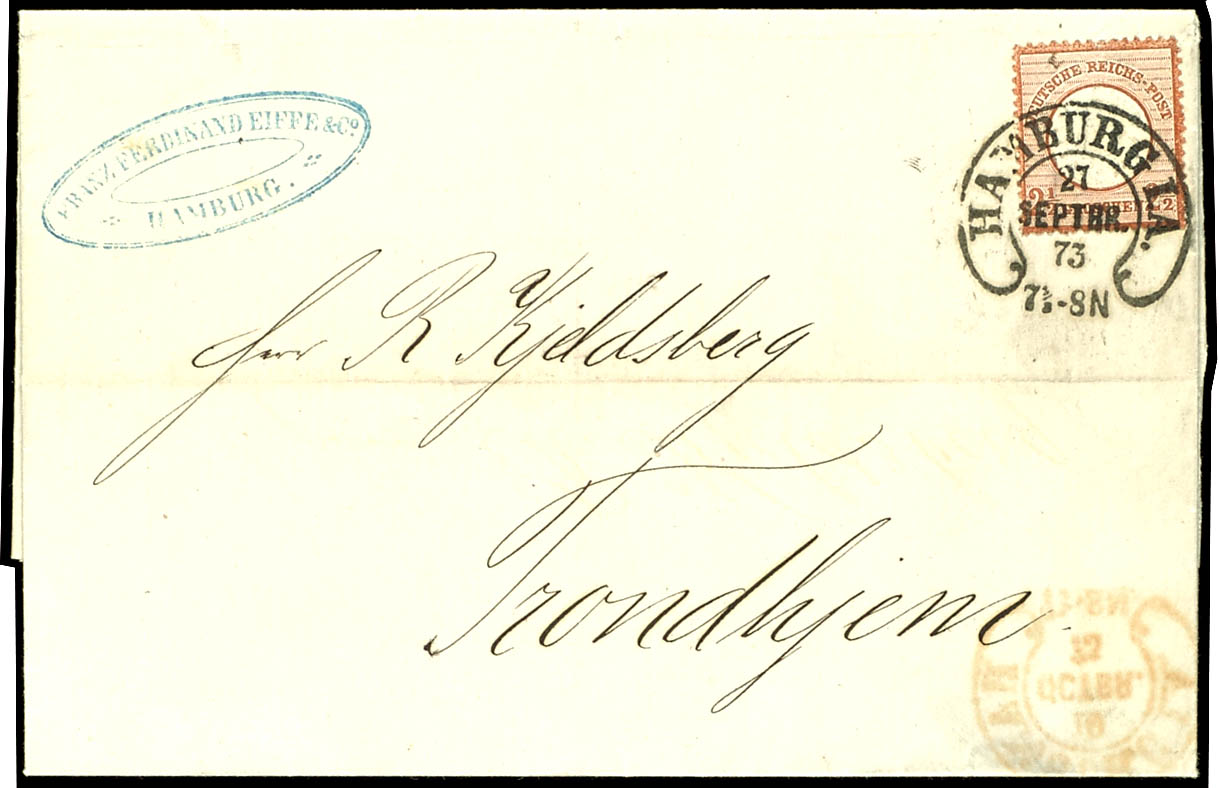 FRANZ FERDINAND EIFFE & Co.
HAMBURG.
DEUTSCHE REICHS-POST
2½ GROSCHEN 2½
HAMBURG I.A.
27
SEPTBR.
73
7½-8N
Herr R Kjeldsberg
Trondhjem